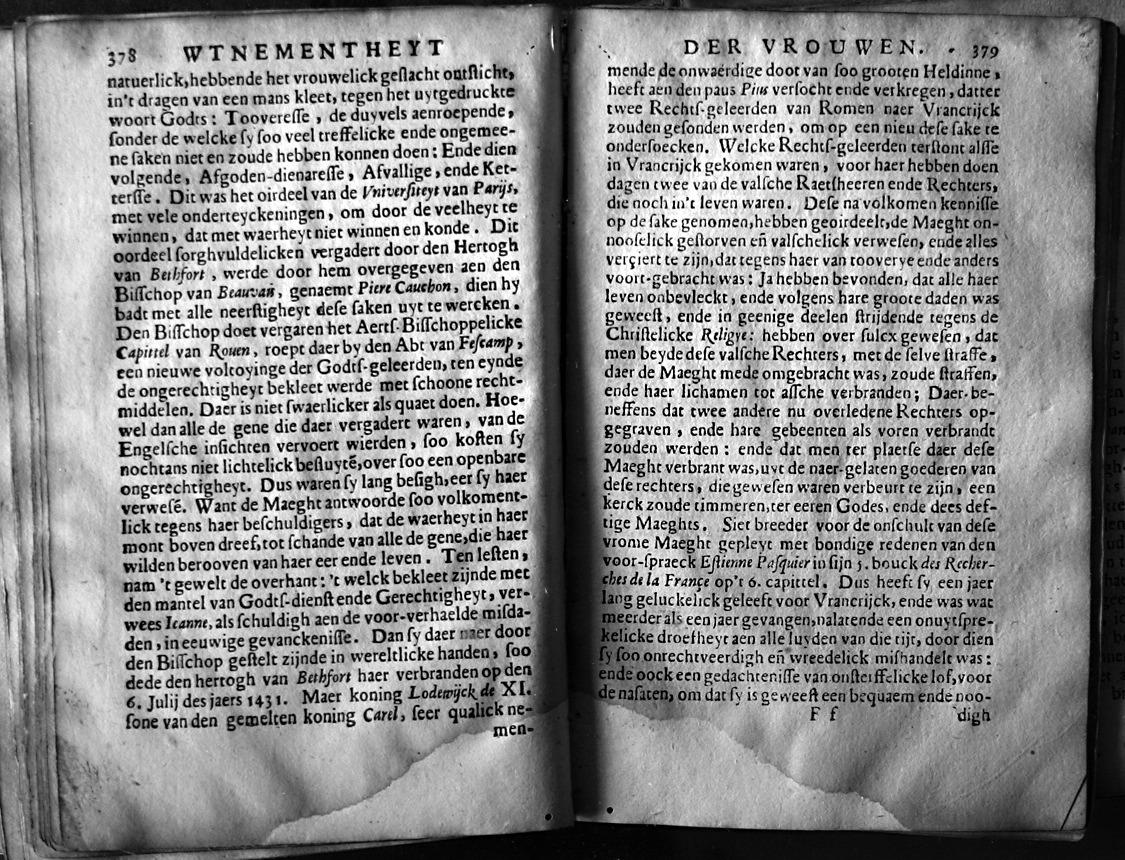 378 WTNEMENTHEYT
natuerlick, hebbende het vrouwelick geſlacht ontſticht,
in't dragen van een mans kleet, tegen het uytgedruckte
woort Godts: Toovereſſe, de duyvels aenroepende,
ſonder de welcke ſy ſoo veel treffelicke ende ongemee-
ne ſaken niet en zoude hebben konnen doen: Ende dien
volgende, Afgoden-dienareſſe, Afvallige, ende Ket-
terſſe. Dit was het oirdeel van de Vniverſiteyt van Parijs,
met vele onderteyckeningen, om door de veelheyt te
winnen, dat met waerheyt niet winnen en konde. Dit
oordeel ſorghvuldelicken vergadert door den Hertogh
van Bethfort, werde door hem overgegeven aen den
Biſſchop van Beauvañ, genaemt Piere Cauchon, dien hy
badt met alle neerſtigheyt deſe ſaken uyt te wercken.
Den Biſſchop doet vergaren het Aertſ-Biſſchoppelicke
Capittel van Rouen, roept daer by den Abt van Feſcamp,
een nieuwe voltoyinge der Godtſ-geleerden, ten eynde
de ongerechtigheyt bekleet werde met ſchoone recht-
middelen. Daer is niet ſwaerlicker als quaet doen. Hoe-
wel dan alle de gene die daer vergadert waren, van de
Engelſche inſichten vervoert wierden, ſoo koſten ſy
nochtans niet lichtelick beſluytē, over ſoo een openbare
ongerechtigheyt. Dus waren ſy lang beſigh, eer ſy haer
verweſē. Want de Maeght antwoorde ſoo volkoment-
lick tegens haer beſchuldigers, dat de waerheyt in haer
mont boven dreef, tot ſchande van alle de gene, die haer
wilden berooven van haer eer ende leven. Ten leſten,
nam 't gewelt de overhant: 't welck bekleet zijnde met
den mantel van Godtſ-dienſt ende Gerechtigheyt, ver-
wees Ieanne, als ſchuldigh aen de voor-verhaelde miſda-
den, in eeuwige gevanckeniſſe. Dan ſy daer naer door
den Biſſchop geſtelt zijnde in wereltlicke handen, ſoo
dede den hertogh van Bethfort haer verbranden op den
6. Julij des jaers 1431. Maer koning Lodewijck de XI.
ſone van den gemelten koning Carel, ſeer qualick ne-
men-
DER VROUWEN. 379
mende de onwaerdige doot van ſoo grooten Heldinne,
heeft aen den paus Pius verſocht ende verkregen, datter
twee Rechtſ-geleerden van Romen naer Vrancrijck
zouden geſonden werden, om op een nieu deſe ſake te
onderſoecken. Welcke Rechtſ-geleerden terſtont alſſe
in Vrancrijck gekomen waren, voor haer hebben doen
dagen twee van de valſche Raetſheeren ende Rechters,
die noch in't leven waren. Deſe na volkomen kenniſſe
op de ſake genomen, hebben geoirdeelt, de Maeght on-
nooſelick geſtorven eñ valſchelick verweſen, ende alles
verçiert te zijn, dat tegens haer van tooverye ende anders
voort-gebracht was: Ja hebben bevonden, dat alle haer
leven onbevleckt, ende volgens hare groote daden was
geweeſt, ende in geenige deelen ſtrijdende tegens de
Chriſtelicke Religye: hebben over ſulcx geweſen, dat
men beyde deſe valſche Rechters, met de ſelve ſtraffe,
daer de Maeght mede omgebracht was, zoude ſtraffen,
ende haer lichamen tot aſſche verbranden; Daer-be-
neffens dat twee andere nu overledene Rechters op-
gegraven, ende hare gebeenten als voren verbrandt
zouden werden: ende dat men ter plaetſe daer deſe
Maeght verbrant was, uyt de naer-gelaten goederen van
deſe rechters, die geweſen waren verbeurt te zijn, een
kerck zoude timmeren, ter eeren Godes, ende dees def-
tige Maeghts. Siet breeder voor de onſchult van deſe
vrome Maeght gepleyt met bondige redenen van den
voor-ſpraeck Eſtienne Paſquier in ſijn 5. bouck des Recher-
ches de la France op't 6. capittel. Dus heeft ſy een jaer
lang geluckelick geleeft voor Vrancrijck, ende was wat
meerder als een jaer gevangen, nalatende een onuytſpre-
kelicke droefheyt aen alle luyden van die tijt, door dien
ſy ſoo onrechtveerdigh eñ wreedelick miſhandelt was:
ende oock een gedachteniſſe van onſterffelicke lof, voor
de naſaten, om dat ſy is geweeſt een bequaem ende noo-
F f digh